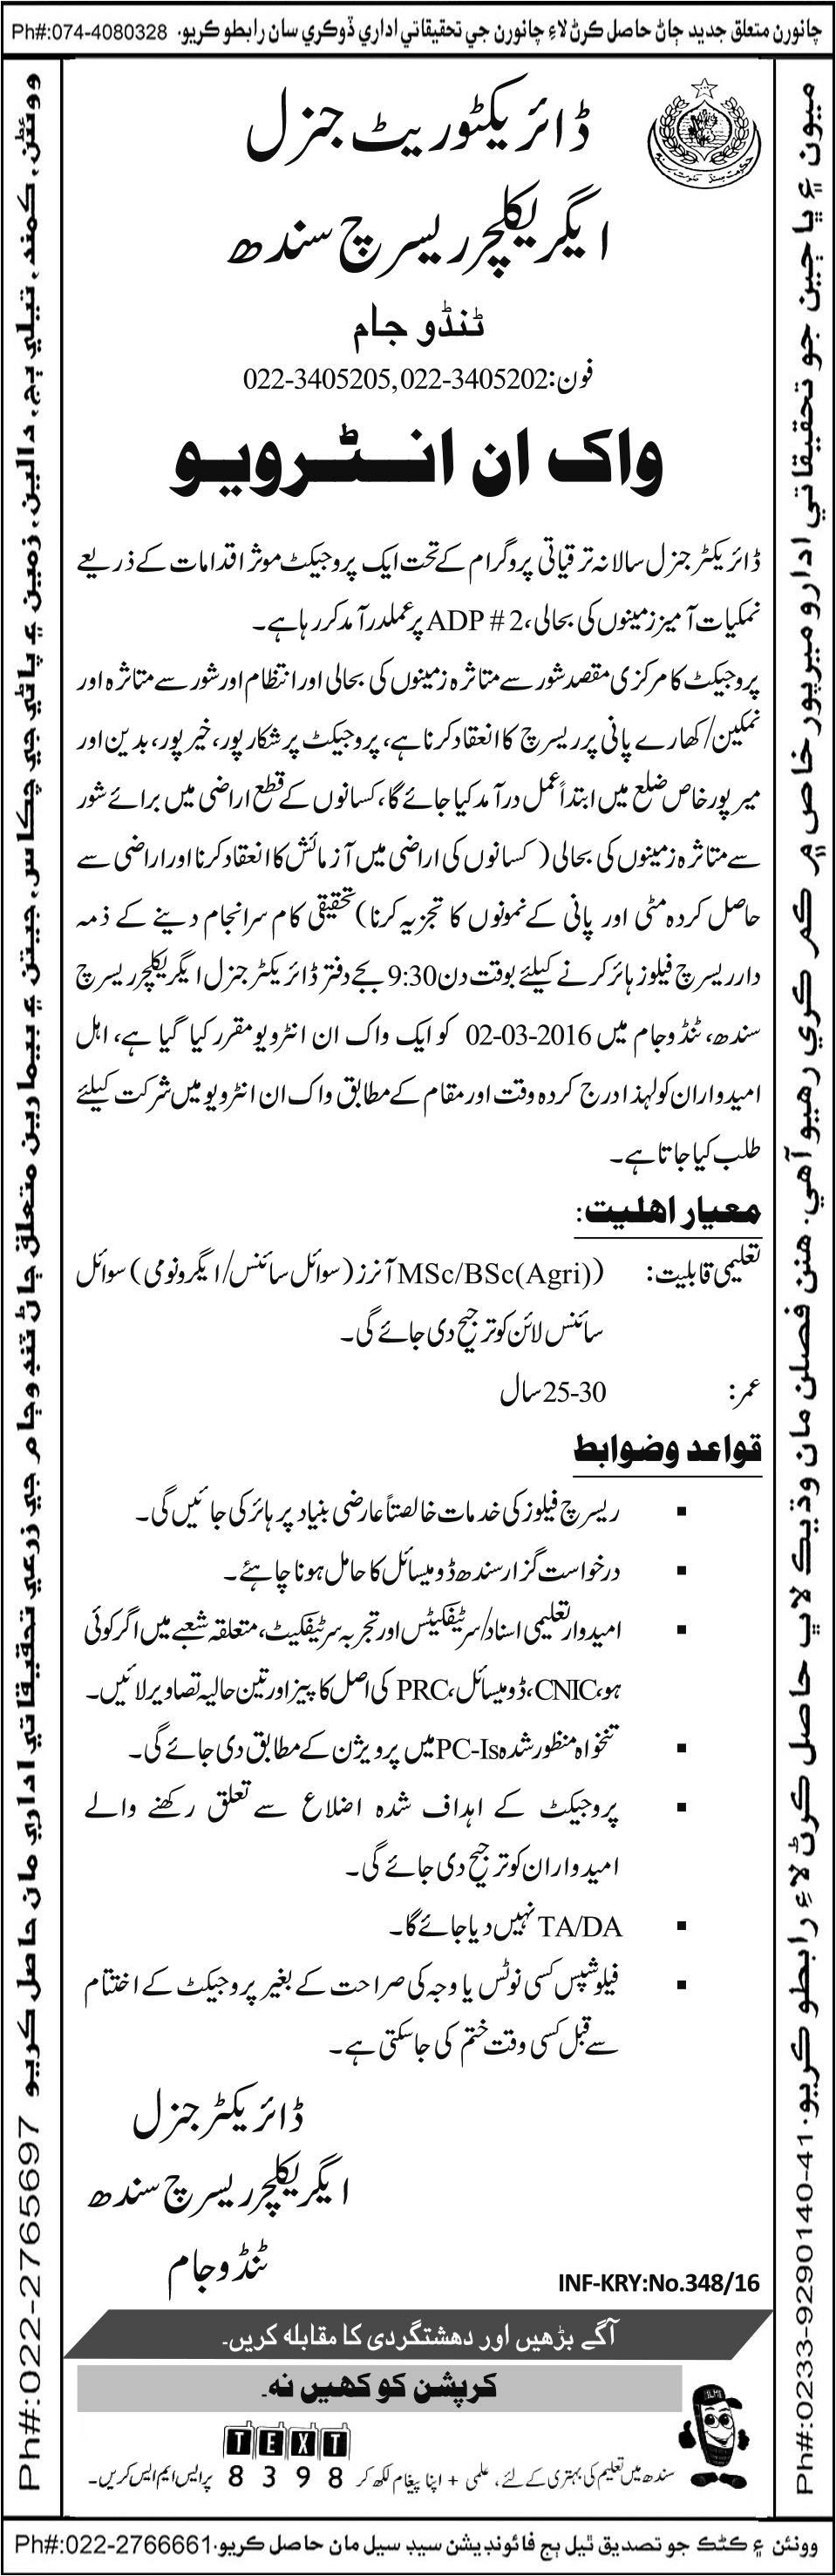 چانورن متعلق جديد ڄاڻ حاصل ڪرڻ لاءِ چانورن جي تحقيقاتي اداري ڏوڪري سان رابطو ڪريو. Ph#:074-4080328
ڈائریکٹوریٹ جنرل
ایگریکلچر ریسرچ سندھ
ٹنڈو جام
فون:022-3405205, 022-3405202
واک ان انٹرویو
ڈائریکٹر جنرل سالانہ ترقیاتی پروگرام کے تحت ایک پروجیکٹ موثر اقدامات کے ذریعے
نمکیات آمیز زمینوں کی بحالی، ADP # 2 پر عملدرآمد کر رہا ہے۔
پروجیکٹ کا مرکزی مقصد شور سے متاثرہ زمینوں کی بحالی اور انتظام اور شور سے متاثرہ اور
نمکین/کھارے پانی پر ریسرچ کا انعقاد کرنا ہے، پروجیکٹ پر شکارپور، خیرپور، بدین اور
میرپورخاص ضلع میں ابتداً عمل درآمد کیا جائے گا، کسانوں کے قطع اراضی میں برائے شور
سے متاثرہ زمینوں کی بحالی (کسانوں کی اراضی میں آزمائش کا انعقاد کرنا اور اراضی سے
حاصل کردہ مٹی اور پانی کے نمونوں کا تجزیہ کرنا) تحقیقی کام سرانجام دینے کے ذمہ
دار ریسرچ فیلوز ہائر کرنے کیلئے بوقت دن 9:30 بجے دفتر ڈائریکٹر جنرل ایگریکلچر ریسرچ
سندھ، ٹنڈوجام میں 02-03-2016 کو ایک واک ان انٹرویو مقرر کیا گیا ہے، اہل
امیدواران کو لہذا درج کردہ وقت اور مقام کے مطابق واک ان انٹرویو میں شرکت کیلئے
طلب کیا جاتا ہے۔
معیار اهلیت:
تعلیمی قابلیت: MSc/BSc(Agri)) آنرز (سوائل سائنس/ایگرونومی) سوائل
سائنس لائن کو ترجیح دی جائے گی۔
عمر: 25-30 سال
قواعد وضوابط
▪ ریسرچ فیلوز کی خدمات خالصتاً عارضی بنیاد پر ہائر کی جائیں گی۔
▪ درخواست گزار سندھ ڈومیسائل کا حامل ہونا چاہئے۔
▪ امیدوار تعلیمی اسناد/سرٹیفکیٹس اور تجربہ سرٹیفکیٹ، متعلقہ شعبے میں اگر کوئی
ہو، CNIC، ڈومیسائل، PRC کی اصل کاپیز اور تین حالیہ تصاویر لائیں۔
▪ تنخواہ منظور شدہ PC-Is میں پرویژن کے مطابق دی جائے گی۔
▪ پروجیکٹ کے اہداف شدہ اضلاع سے تعلق رکھنے والے
امیدواران کو ترجیح دی جائے گی۔
▪ TA/DA نہیں دیا جائے گا۔
▪ فیلوشپس کسی نوٹس یا وجہ کی صراحت کے بغیر پروجیکٹ کے اختتام
سے قبل کسی وقت ختم کی جاسکتی ہے۔
ڈائریکٹر جنرل
ایگریکلچر ریسرچ سندھ
ٹنڈوجام
INF-KRY:No.348/16
آگے بڑھیں اور دھشتگردی کا مقابلہ کریں۔
کرپشن کو کھیں نہ۔
TEXT
سندھ میں تعلیم کی بہتری کے لئے، علمی + اپنا پیغام لکھ کر 8398 پر ایس ایم ایس کریں۔
ميون ۽ ڀاڄين جو تحقيقاتي ادارو ميرپور خاص ۾ ڪم ڪري رهيو آهي. هنن فصلن مان وڌيڪ لاڀ حاصل ڪرڻ لاءِ رابطو ڪريو. Ph#:0233-9290140-41
ووئڻن، ڪمند، تيلي ٻج، دالين، زمين ۽ پاڻي جي چڪاس، جيتن ۽ بيمارين متعلق ڄاڻ ٽنڊوڄام جي زرعي تحقيقاتي اداري مان حاصل ڪريو Ph#:022-2765697
ووئڻن ۽ ڪڻڪ جو تصديق ٿيل ٻج فائونڊيشن سيڊ سيل مان حاصل ڪريو. Ph#:022-2766661